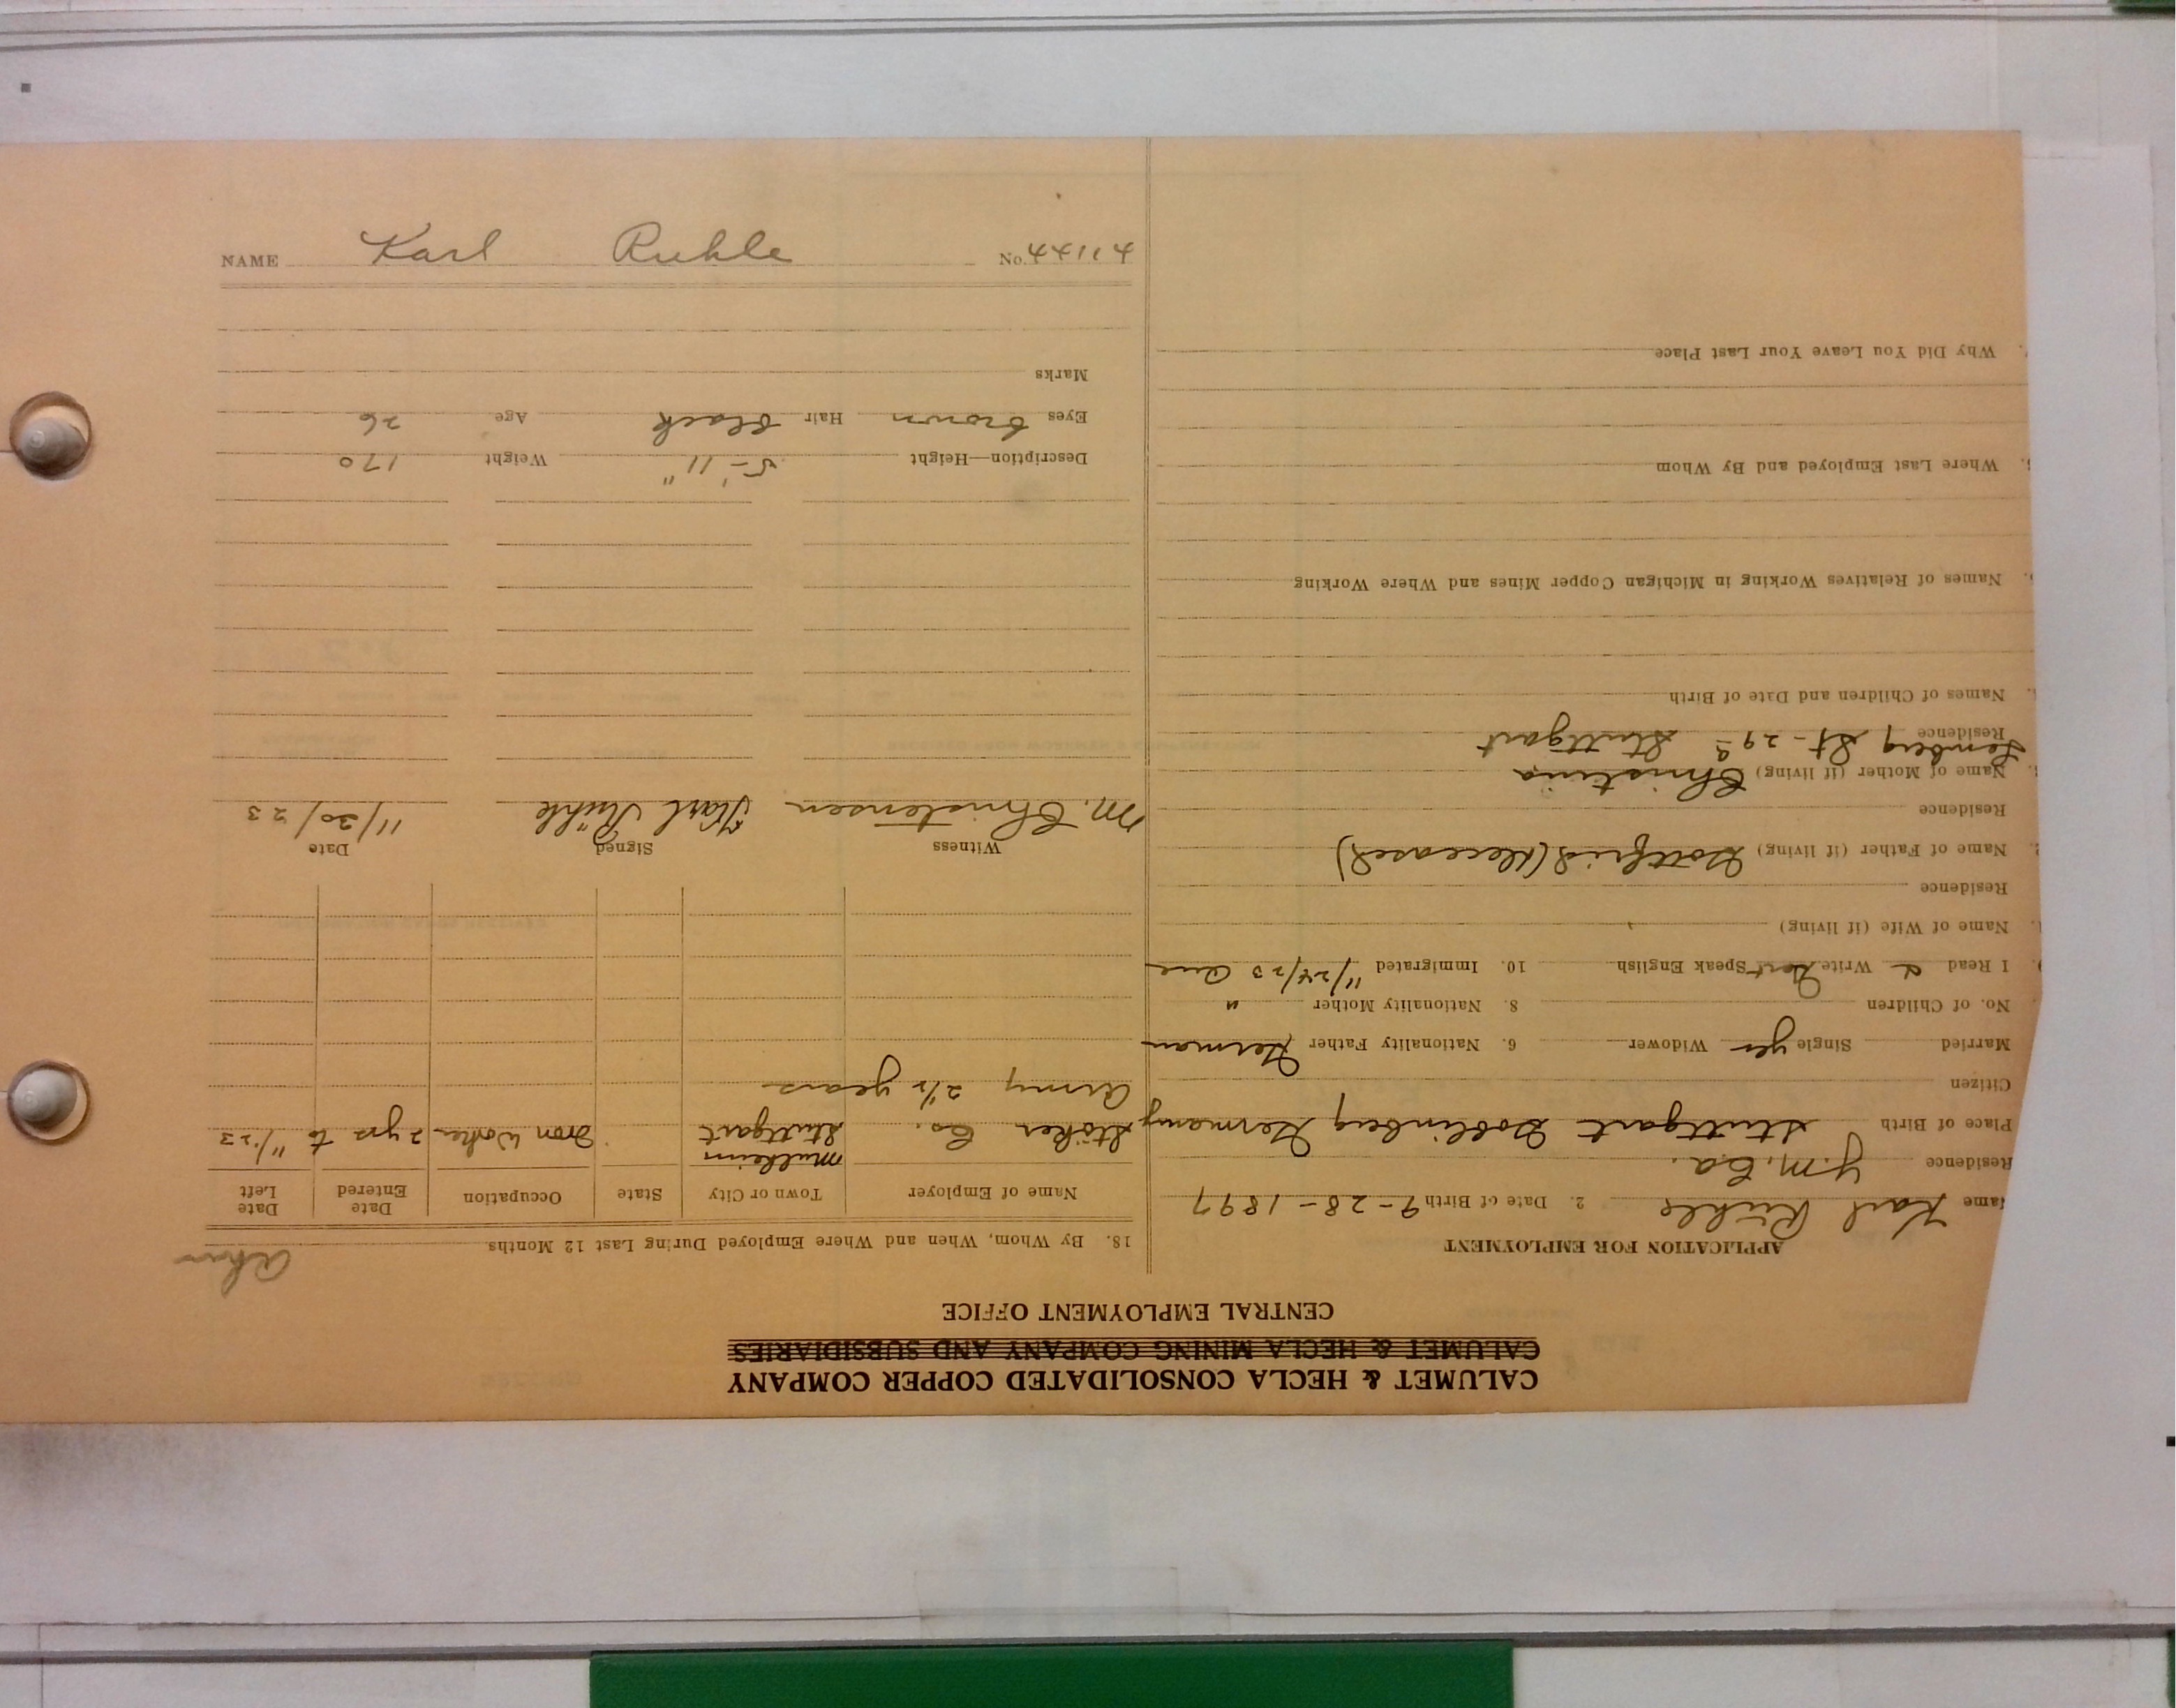 CALUMET & HECLA CONSOLIDATED COPPER COMPANY
CALUMET & HECLA MINING COMPANY AND SUBSIDIARIES
CENTRAL EMPLOYMENT OFFICE
APPLICATION FOR EMPLOYMENT
Name Karl Rühle 2. Date of Birth 9-28-1897
Residence Y.M.Ca.
Place of Birth Stuttgart Germany
Citizen
Married Single yes Widower 6. Nationality Father German
No. of Children 8. Nationality Mother "
I Read & Write Speak English 10. Immigrated 11/24/23
Name of Wife (if living)
Residence
Name of Father (if living) Gottfried (deceased)
Residence
Name of Mother (if living) Christina
Residence Lemberg St-29a Stuttgart
Names of Children and Date of Birth
Names of Relatives Working in Michigan Copper Mines and Where Working
Where Last Employed and By Whom
Why Did You Leave Your Last Place
18. By Whom, When and Where Employed During Last 12 Months
Name of Employer Town or City State Occupation Date Entered Date Left
Mulheim
Stöker Co. Stuttgart Iron Worker 2 yrs to 11/23
Army 2 1/2 years
Witness Signed Date
M. Christensen Karl Rühle 11/30/23
Description—Height 5'-11" Weight 170
Eyes brown Hair black Age 26
Marks
NAME Karl Ruhle No. 44114